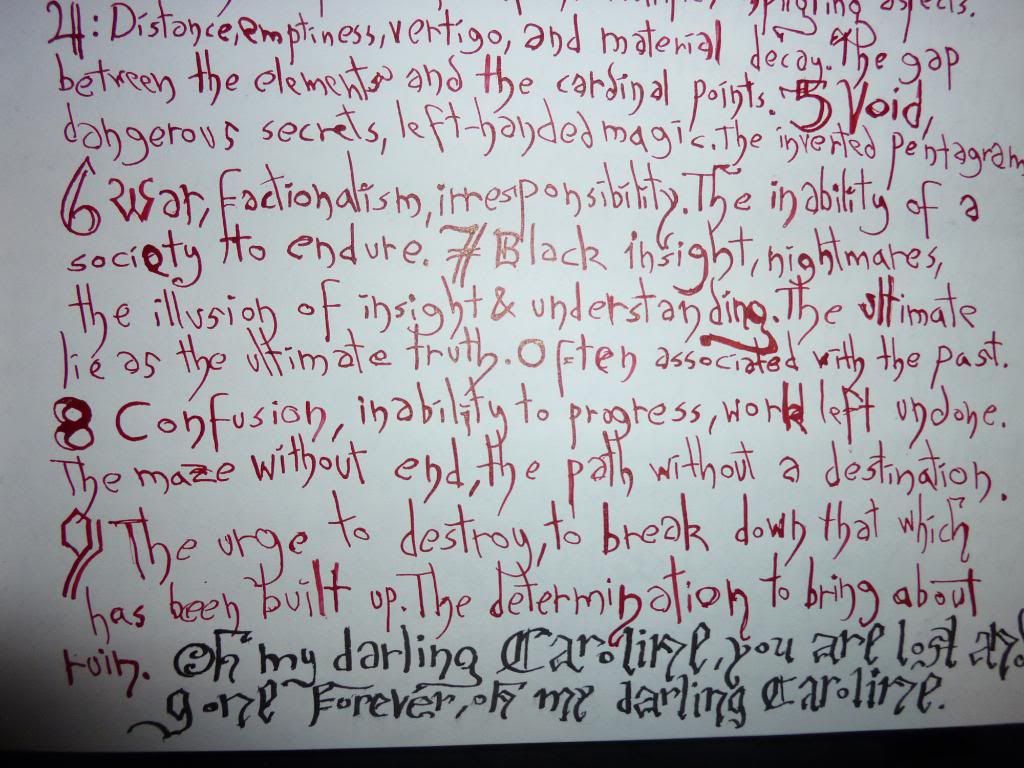 aspects.
4: Distance, emptiness, vertigo, and material decay. The gap
between the elements and the cardinal points. 5 Void,
dangerous secrets, left-handed magic. The inverted pentagram
6 War, factionalism, irresponsibility. The inability of a
society to endure. 7 Black insight, nightmares,
the illusion of insight & understanding. The ultimate
lie as the ultimate truth. Often associated with the past.
8 Confusion, inability to progress, work left undone.
The maze without end, the path without a destination.
9 The urge to destroy, to break down that which
has been built up. The determination to bring about
ruin. Oh my darling Caroline, you are lost and
gone Forever, oh my darling Caroline.